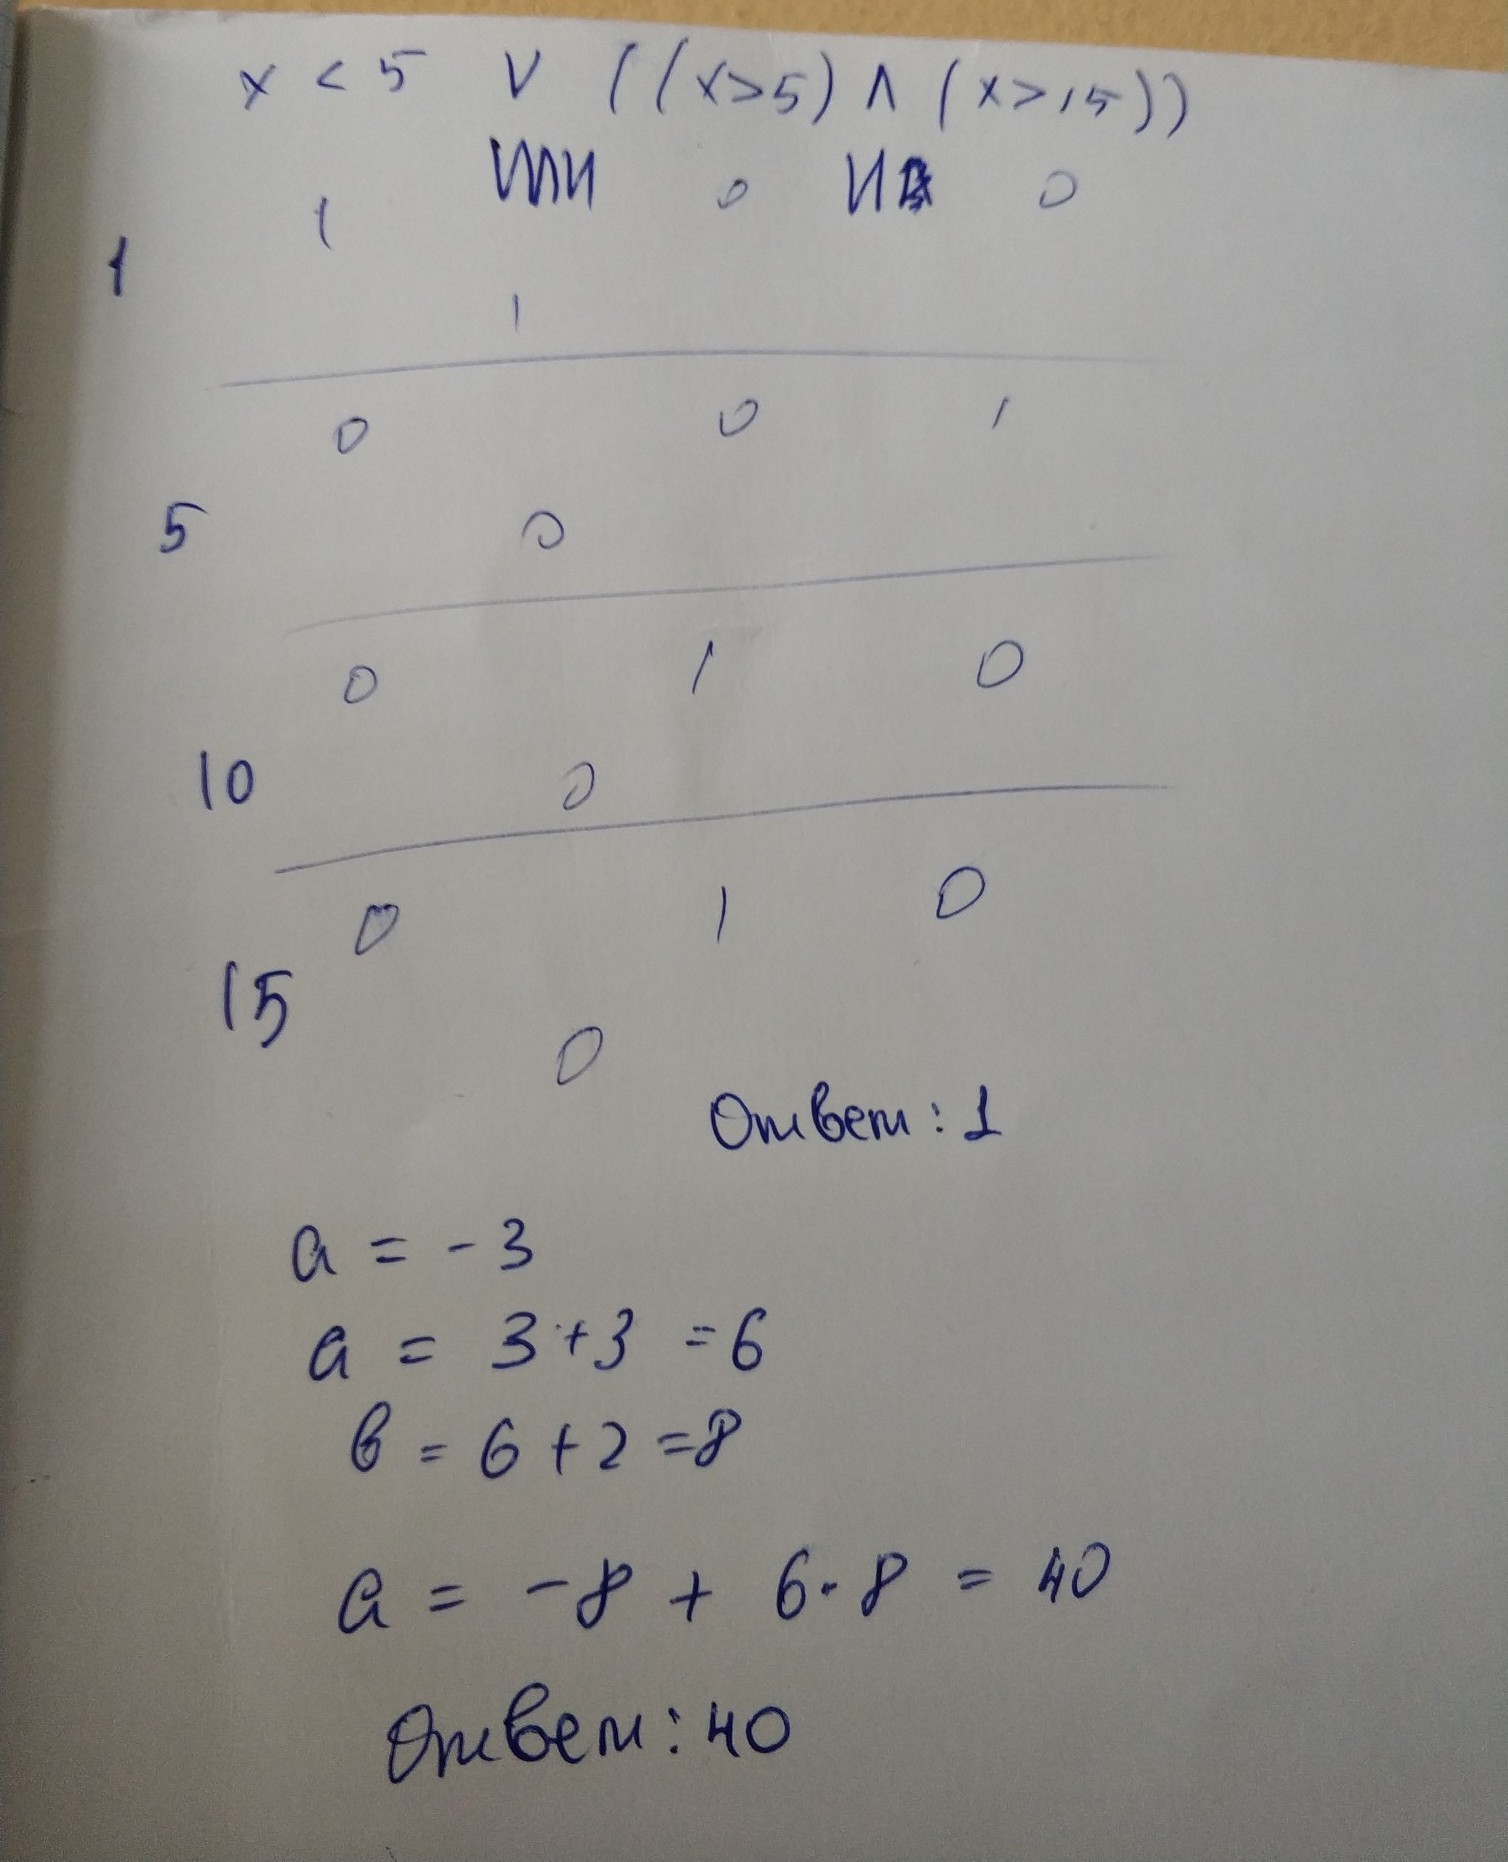 x < 5 ∨ ((x>5) ∧ (x>15))
или 0 И 0
1
1
1
0 0 1
5
0
0 1 0
10
0
0 1 0
15
0
Ответ: 1
a = -3
a = 3+3 = 6
в = 6+2 = 8
a = -8 + 6·8 = 40
Ответ: 40